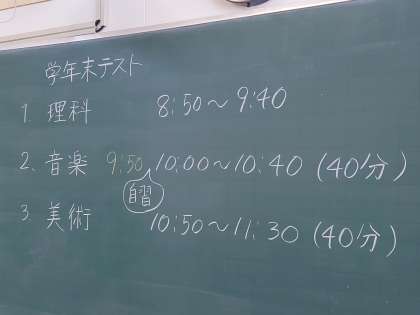 学年末テスト
1. 理科 8:50〜9:40
2. 音楽 9:50 10:00〜10:40 (40分)
自習
3. 美術 10:50〜11:30 (40分)